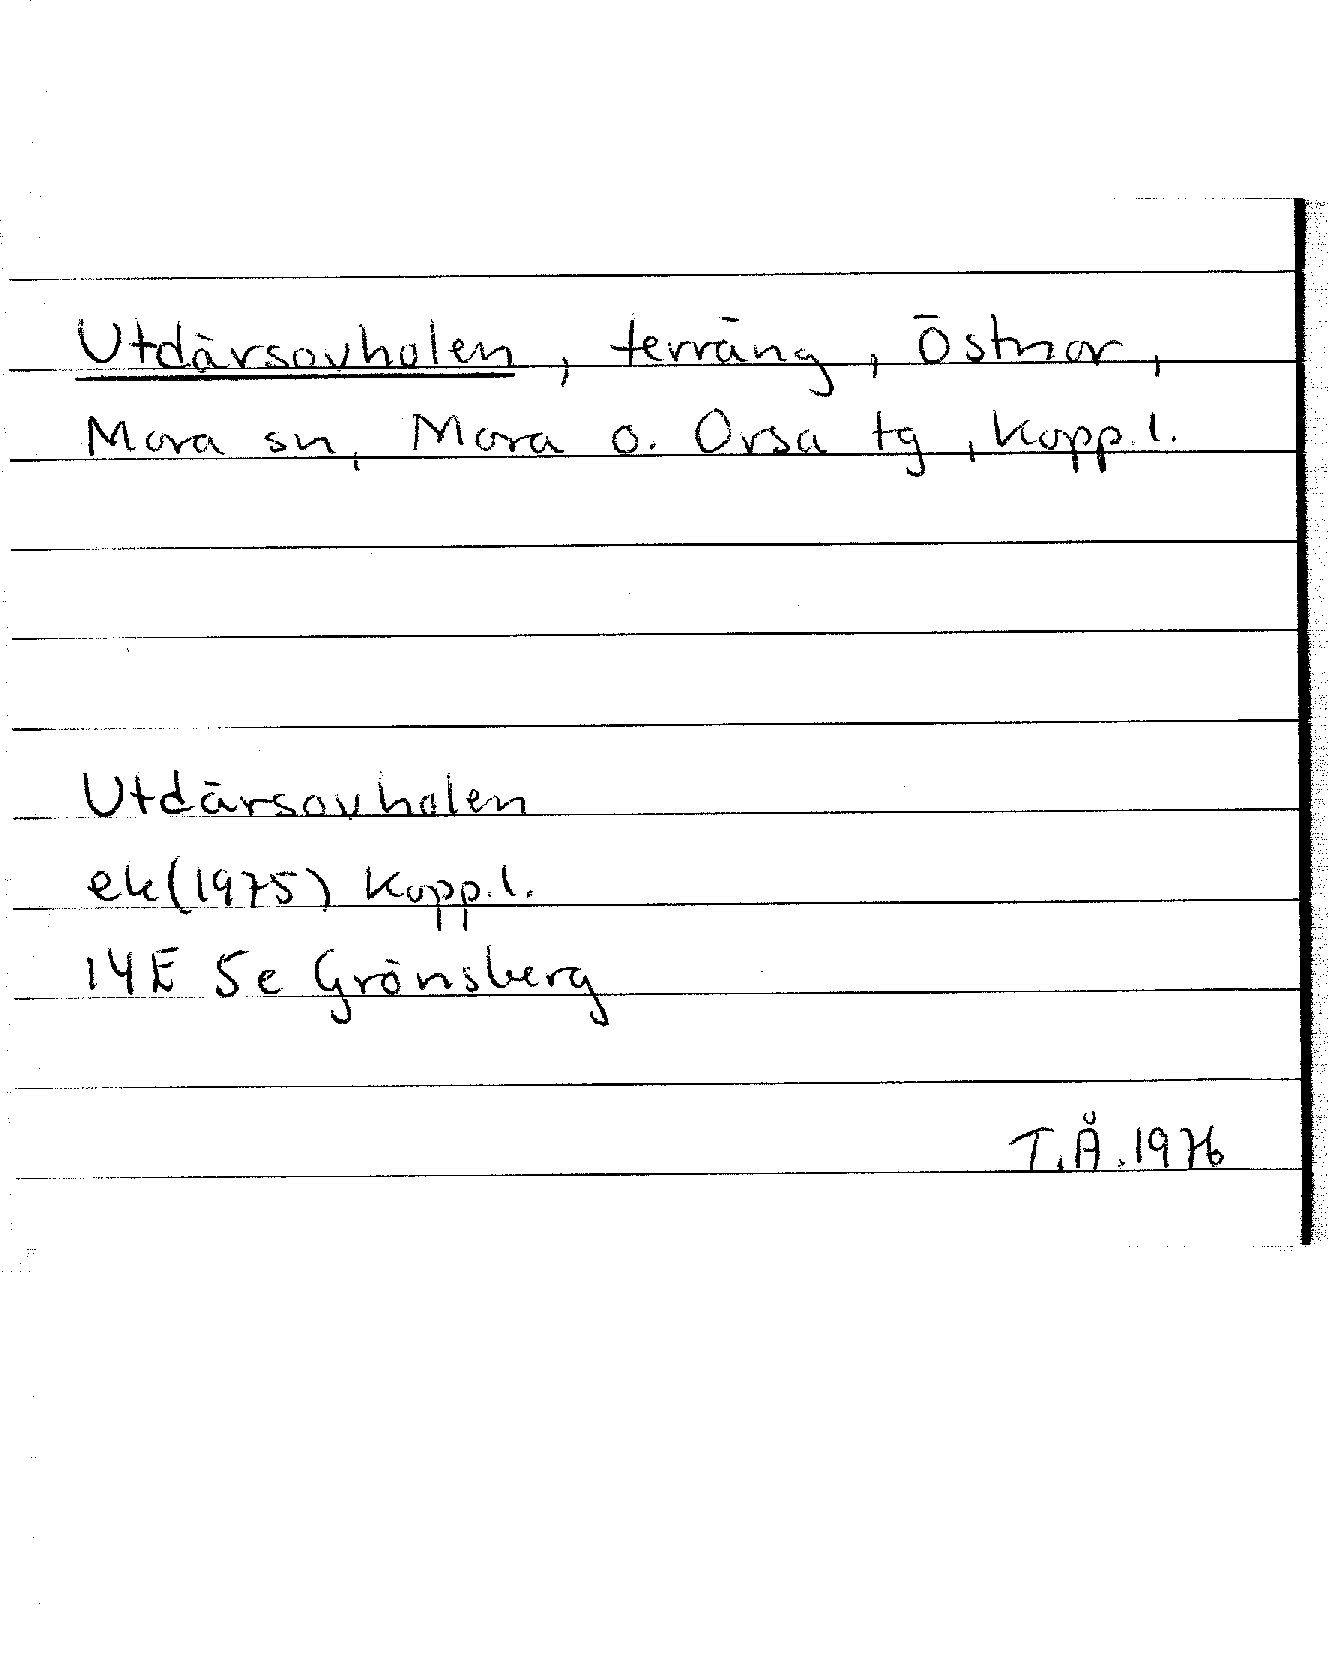 Utdärsovholen, terräng, Östnor,
Mora sn, Mora o. Orsa tg, Kopp.l.
Utdärsovholen
ek(1975) Kopp.l.
14E 5e Grönsberg
T.Å.1976